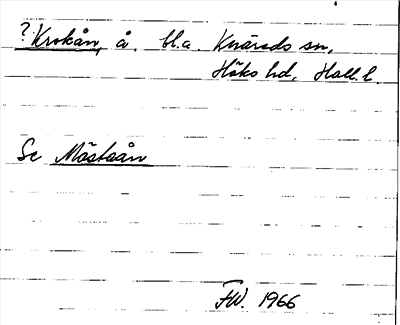 ? Krokån, å. bl.a. Knäreds sn,
Höks hd, Hall. l.
Se Mästaån
FW. 1966